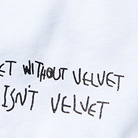 ET WITHOUT VELVET
ISN'T VELVET